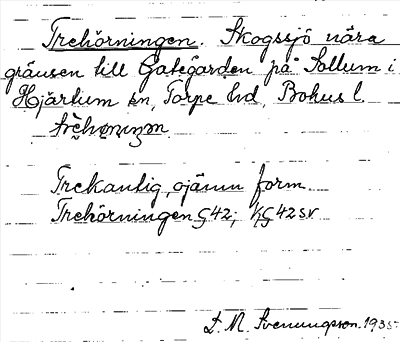 Trehörningen. Skogssjö nära
gränsen till Gategården på Sollum i
Hjärtum sn, Torpe hd, Bohus l.

Trekantig, ojämn form
Trehörningen G 42; KG 42 sv
D. M. Svenungsson. 1935.